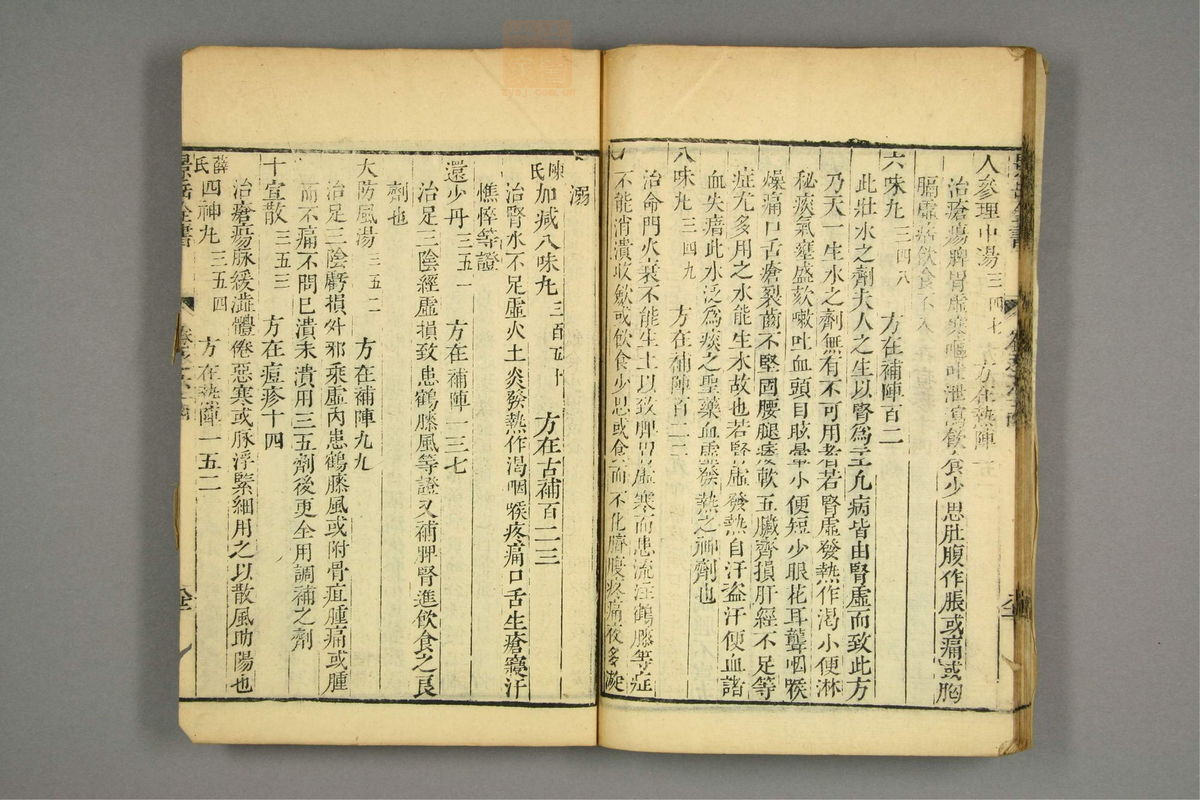 人參理中湯三四七 方在熱陣一
治瘡瘍脾胃虛寒嘔吐泄瀉飲食少思肚腹作脹或痛或胸
膈虛痞飲食不入
六味丸三四八 方在補陣百二
此壯水之劑夫人之生以腎爲主凡病皆由腎虛而致此方
乃天一生水之劑無有不可用者若腎虛發熱作渴小便淋
秘痰氣壅盛欬嗽吐血頭目眩暈小便短少眼花耳聾咽喉
燥痛口舌瘡裂齒不堅固腰腿痿軟五臟齊損肝經不足等
症尤多用之水能生水故也若腎虛發熱自汗盜汗便血諸
血失瘖此水泛爲痰之聖藥血虛發熱之神劑也
八味丸三四九 方在補陣百二二
治命門火衰不能生土以致脾胃虛寒而患流注鶴膝等症
不能消潰收斂或飲食少思或食而不化臍腹疼痛夜多漩
溺
陳氏加減八味丸三百五十 方在古補百二三
治腎水不足虛火上炎發熱作渴咽喉疼痛口舌生瘡寢汗
憔悴等證
還少丹三五一 方在補陣一三七
治足三陰經虛損致患鶴膝風等證又補脾腎進飲食之良
劑也
大防風湯三五二 方在補陣九九
治足三陰虧損外邪乘虛內患鶴膝風或附骨疽腫痛或腫
而不痛不問已潰未潰用三五劑後更全用調補之劑
十宣散三五三 方在痘疹十四
薛氏四神丸三五四 方在熱陣一五二
治瘡瘍脉緩澁體倦惡寒或脉浮緊細用之以散風助陽也
景岳全書